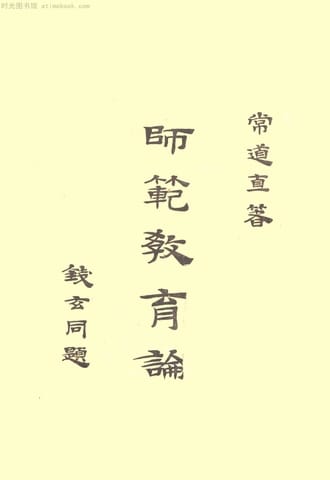 时光图书馆 atimebook.com
常道直著
師範教育論
錢玄同題